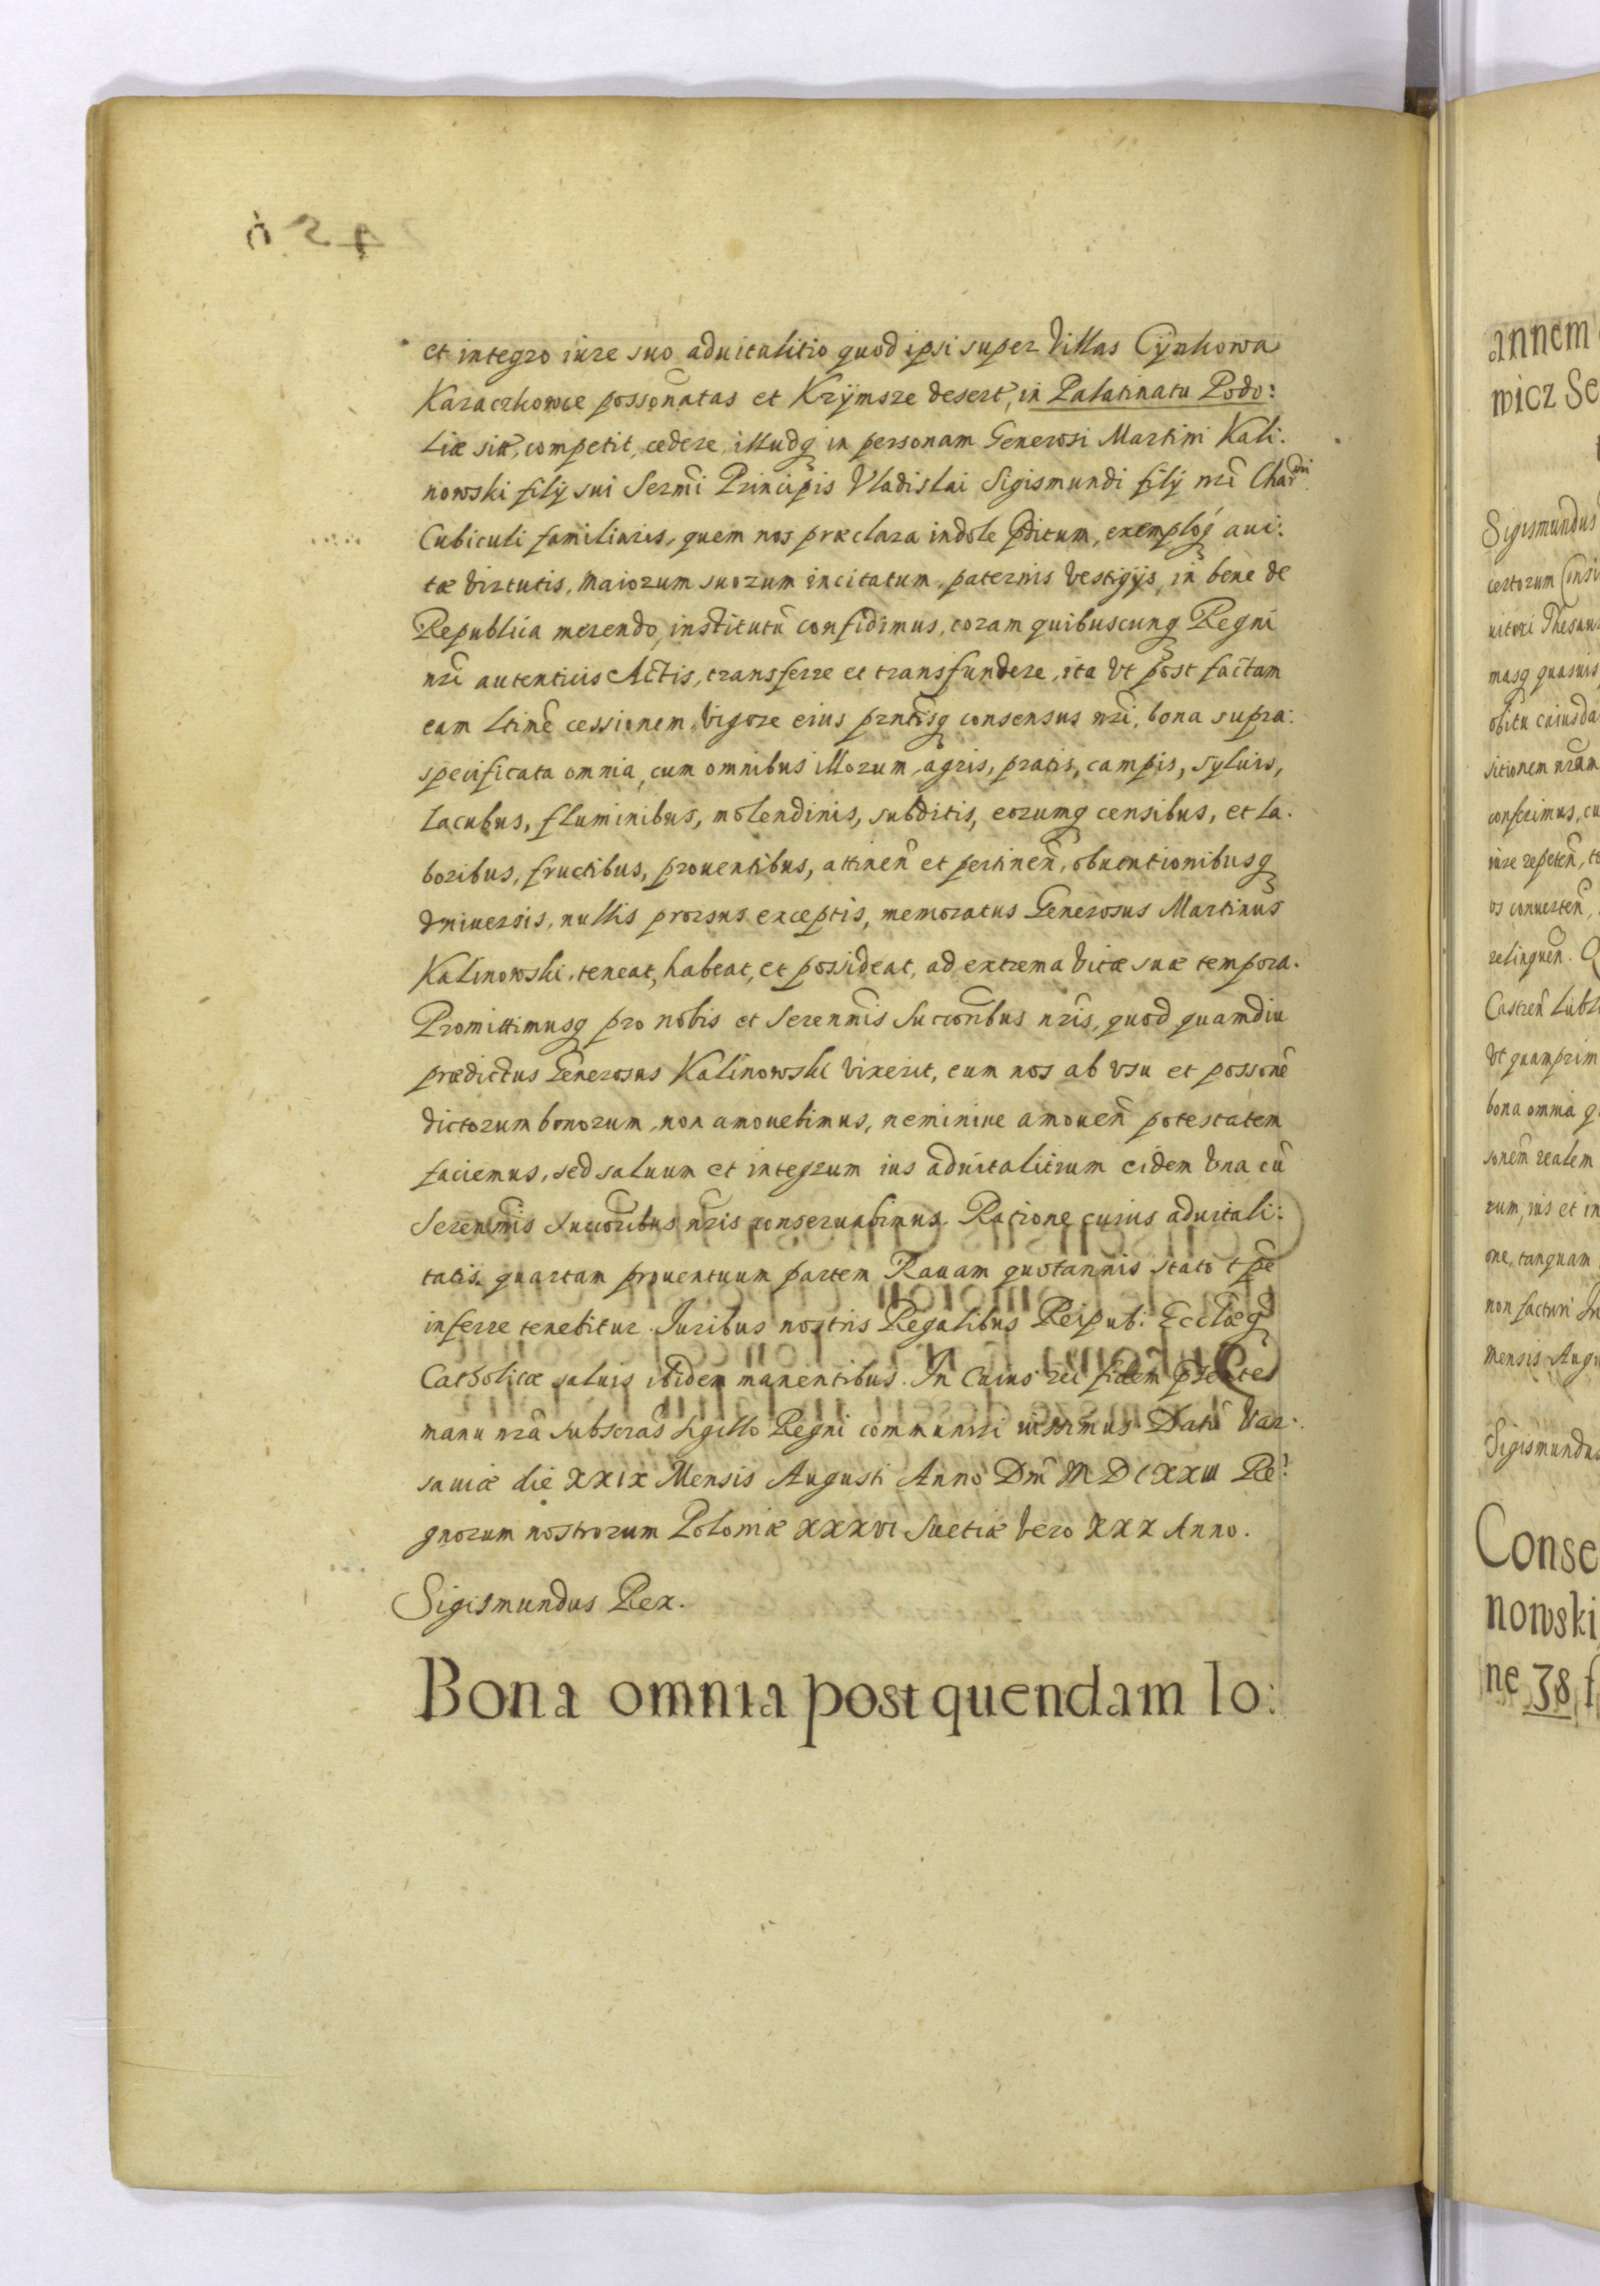 et integro iure suo aduitalitio quod ipsi super Villas Cynkowa
Karaczkowce possonatas et Krÿmsze desert, in Palatinatu Podo:
liæ sit, competit, cedere, illudq in personam Generosi Martini Kali:
nowski filÿ sui Sermi Principis Vladislai Sigismundi filÿ nri Charmi
Cubiculi familiaris, quem nos præclara indole pditum, exemploq aui:
tæ virtutis, Maiorum suorum incitatum, paternis vestigÿs, in bene de
Republica merendo, institutu confidimus, coram quibuscunq Regni
nri autenticis Actis, transferre et transfundere, ita vt post factam
eam ltime cessionem, vigore eius prntisq consensus nri, bona supra:
specificata omnia, cum omnibus illorum, agris, pratis, campis, syluis,
lacubus, fluminibus, molendinis, subditis, eorumq censibus, et la:
boribus, fructibus, prouentibus, attinen et pertinen, obuentionibusq
vniuersis, nullis prorsus exceptis, memoratus Generosus Martinus
Kalinowski, teneat, habeat, et possideat, ad extrema vitæ suæ tempora.
Promittimusq pro nobis et Serenmis Succoribus nris, quod quamdiu
prædictus Generosus Kalinowski vixerit, eum nos ab vsu et possone
dictorum bonorum, non amouebimus, neminiue amouen potestatem
faciemus, sed saluum et integrum ius aduitalitium eidem vna cu
Serenmis succoribus nris conseruabimus. Ratione cuius aduitali:
tatis, quartam prouentuum partem Rauam quotannis stato tpe
inferre tenebitur. Iuribus nostris Regalibus Reipub: Ecclæq
Catholicæ saluis ibidem manentibus. In Cuius rei fidem psentes
manu nra subscras sigillo Regni communiri iussimus. Datu Var:
sauiæ die XXIX Mensis Augusti Anno Dni MDCXXIII Re:
gnorum nostrorum Poloniæ XXXVI Suetiæ vero XXX Anno.
Sigismundus Rex.
Bona omnia post quendam Io:
annem
wicz Se
Sigismundus
certorum Consi
masq quasuis
obitu cuiusda
sitionem nram
conferimus, cu
iure repeten, te
os conuerten,
relinquen. Q
Castren Lubl
Vt quamprim
bona omnia q
sonem realem
rum, ius et in
one, tanquam
non facturi In
Mensis Augu
Sigismundus
Conse
nowski
ne 38 f